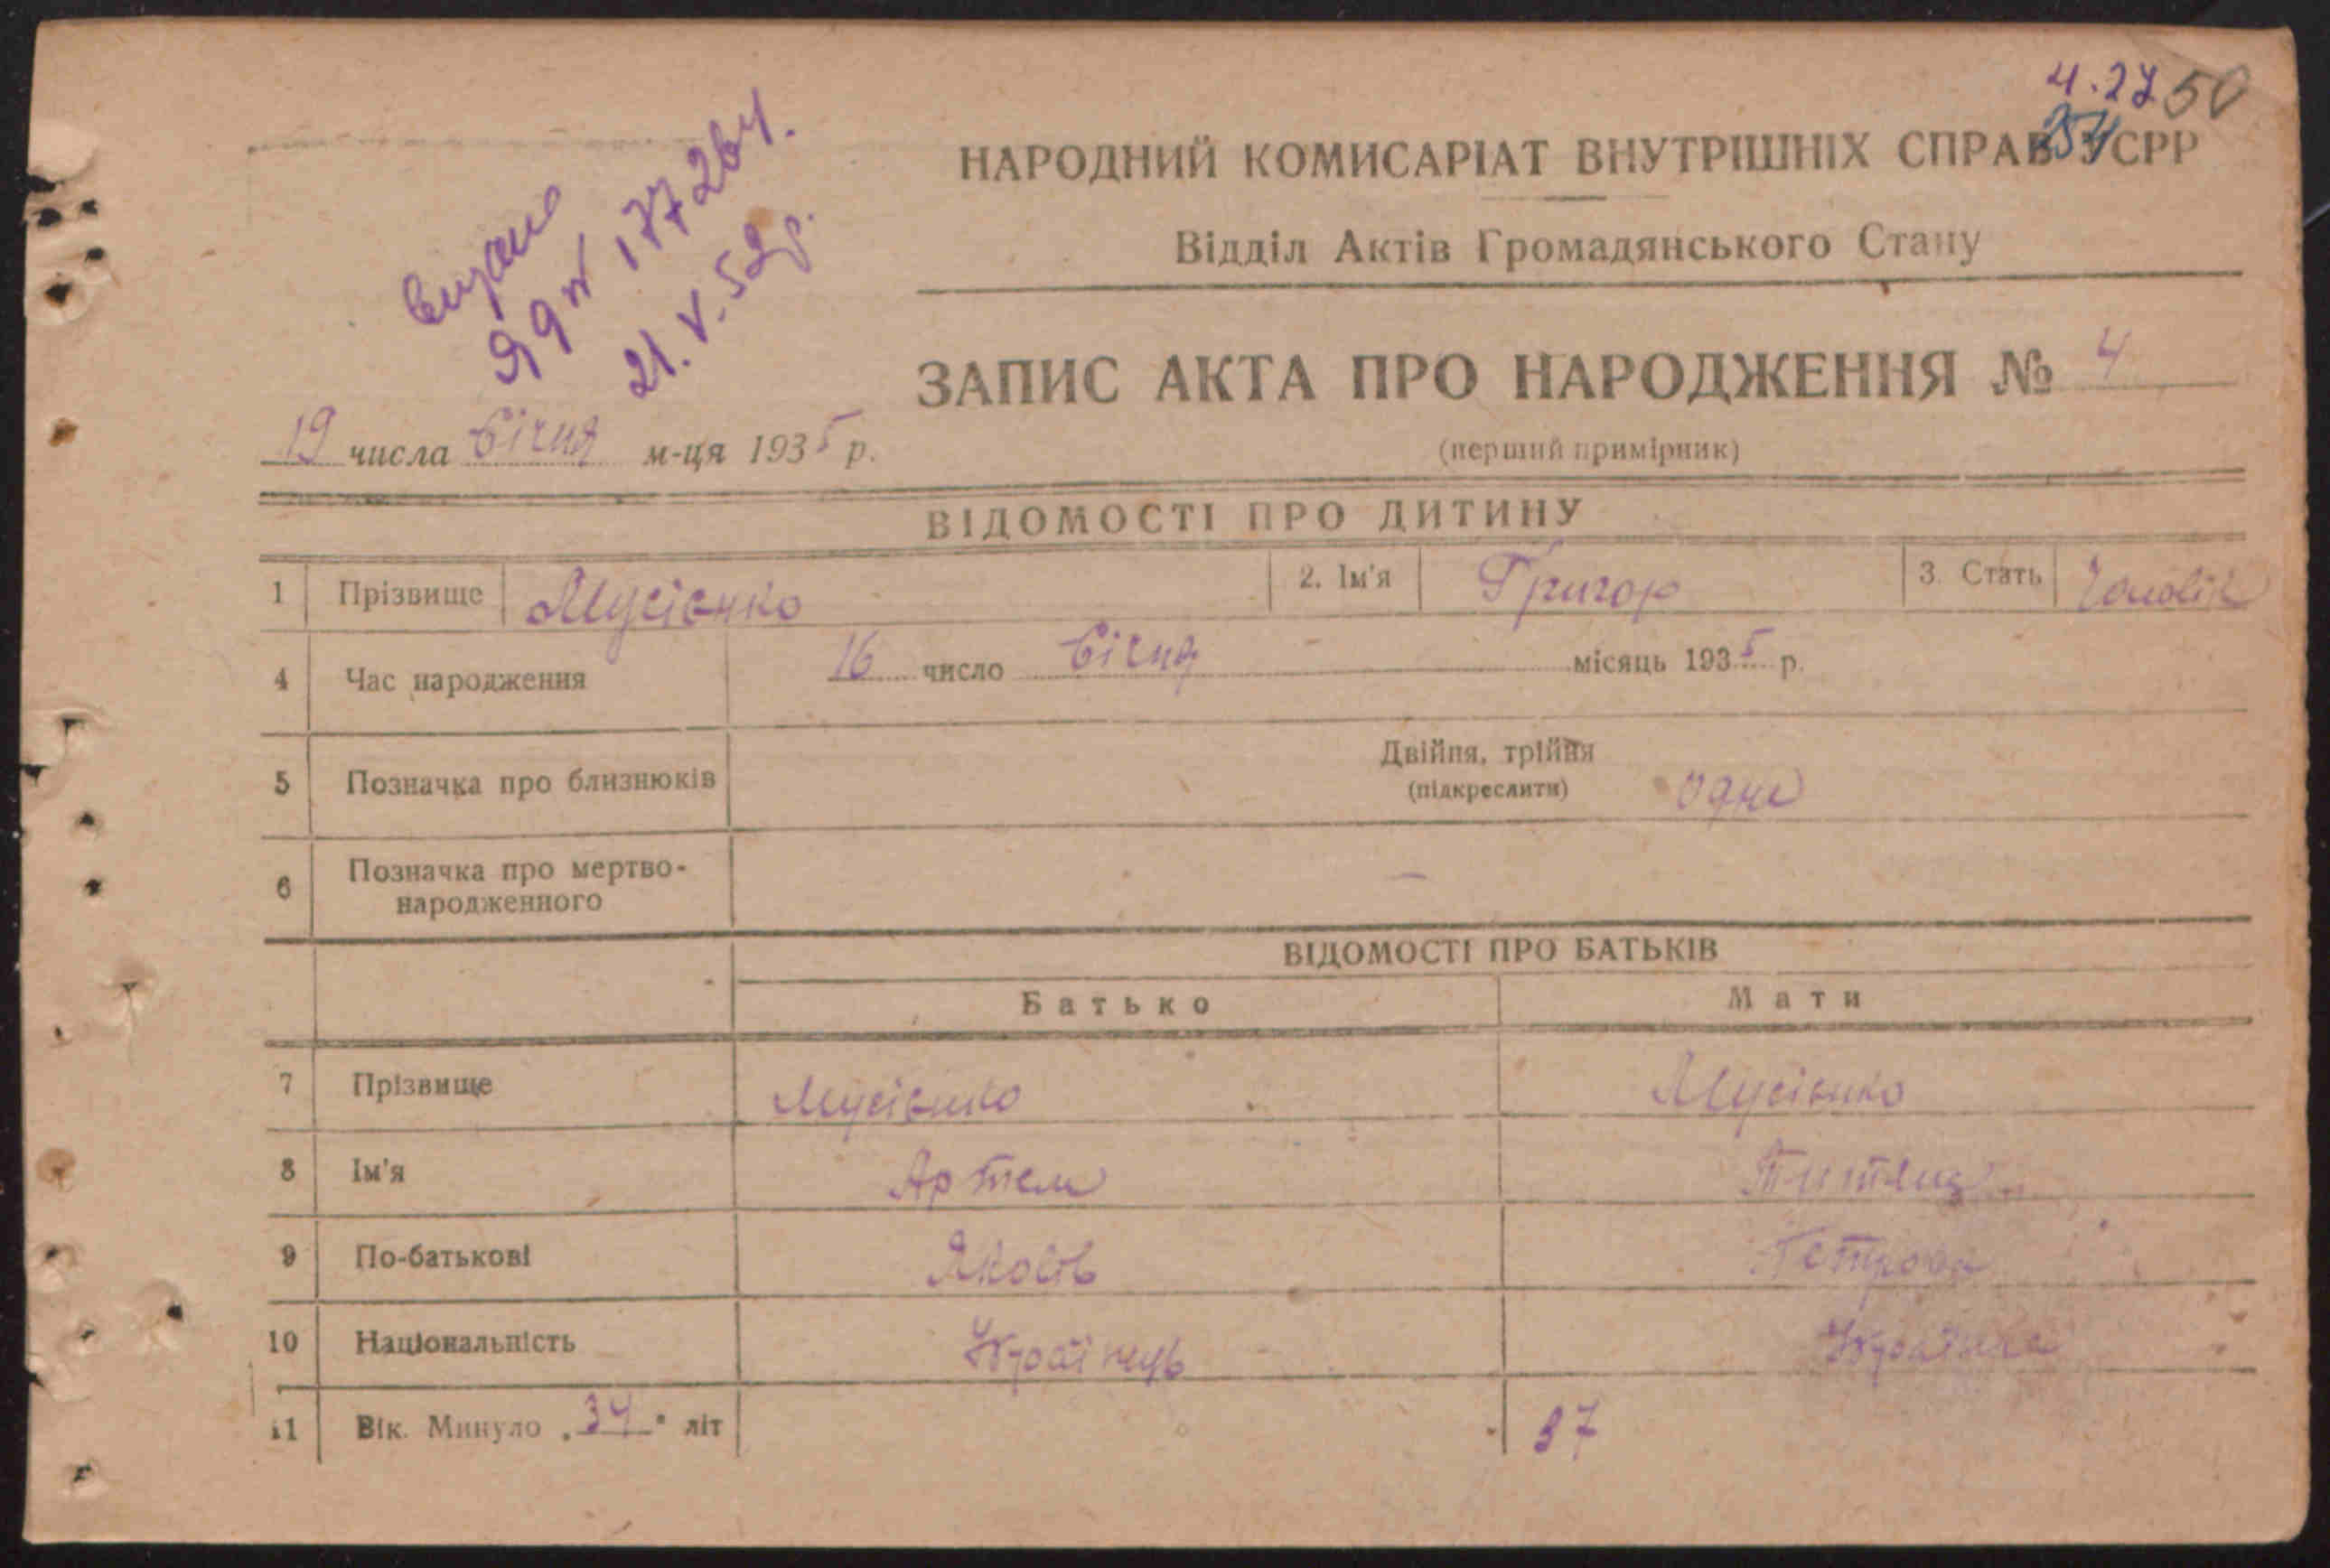 4.27 50
254
НАРОДНИЙ КОМИСАРІАТ ВНУТРІШНІХ СПРАВ УСРР
Відділ Актів Громадянського Стану
видано
ЯЯ № 177264.
21.V.52р.
ЗАПИС АКТА ПРО НАРОДЖЕННЯ № 4
(перший примірник)
19 числа Січня м-ця 1935 р.
ВІДОМОСТІ ПРО ДИТИНУ
1 Прізвище Мусієнко 2. Ім'я Григор 3. Стать Чоловік
4 Час народження 16 число Січня місяць 1935 р.
5 Позначка про близнюків Двійня, трійня
(підкреслити) одне
6 Позначка про мертво-
народженного —
ВІДОМОСТІ ПРО БАТЬКІВ
Батько Мати
7 Прізвище Мусієнко Мусієнко
8 Ім'я Артем
9 По-батькові Яковів Петровн
10 Національність Українець Українка
11 Вік. Минуло „34" літ 37